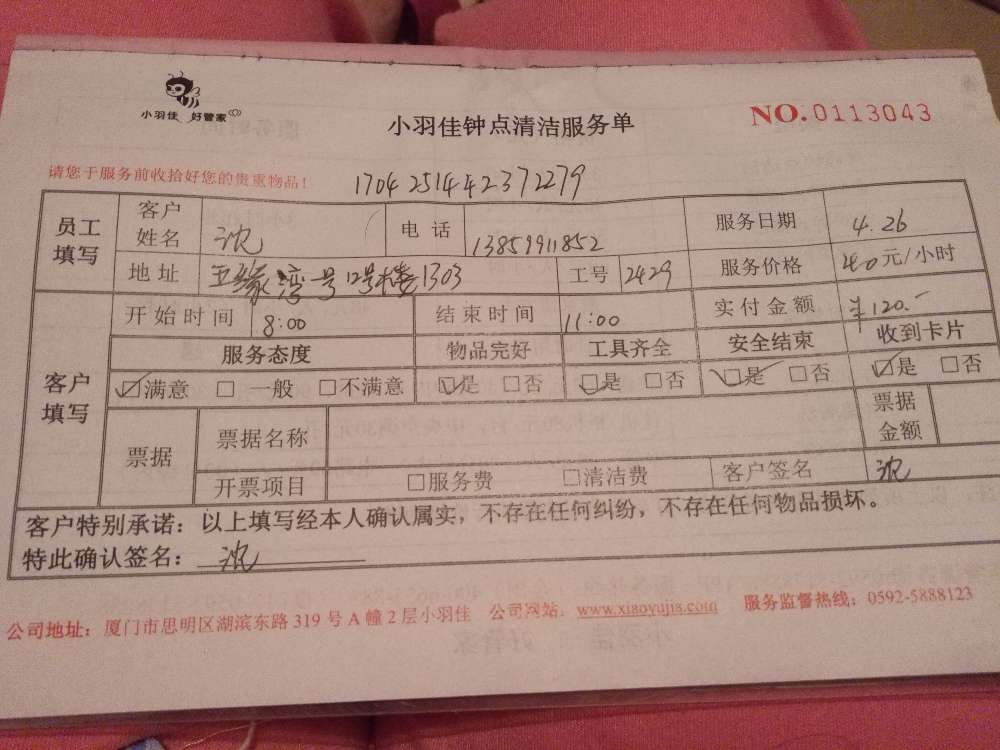 小羽佳 好管家
小羽佳钟点清洁服务单
NO.0113043
请您于服务前收拾好您的贵重物品！
1704251442372279
员工填写 客户姓名 沈 电话 13859911852 服务日期 4.26
地址 五缘湾一号12号楼1303 工号 2429 服务价格 40元/小时
客户填写 开始时间 8:00 结束时间 11:00 实付金额 ￥120.-
服务态度 物品完好 工具齐全 安全结束 收到卡片
☑满意 □一般 □不满意 ☑是 □否 ☑是 □否 ☑是 □否 ☑是 □否
票据 票据名称 票据金额
开票项目 □服务费 □清洁费 客户签名 沈
客户特别承诺：以上填写经本人确认属实，不存在任何纠纷，不存在任何物品损坏。
特此确认签名：沈
公司地址：厦门市思明区湖滨东路319号A幢2层小羽佳 公司网站：www.xiaoyujia.com 服务监督热线：0592-5888123